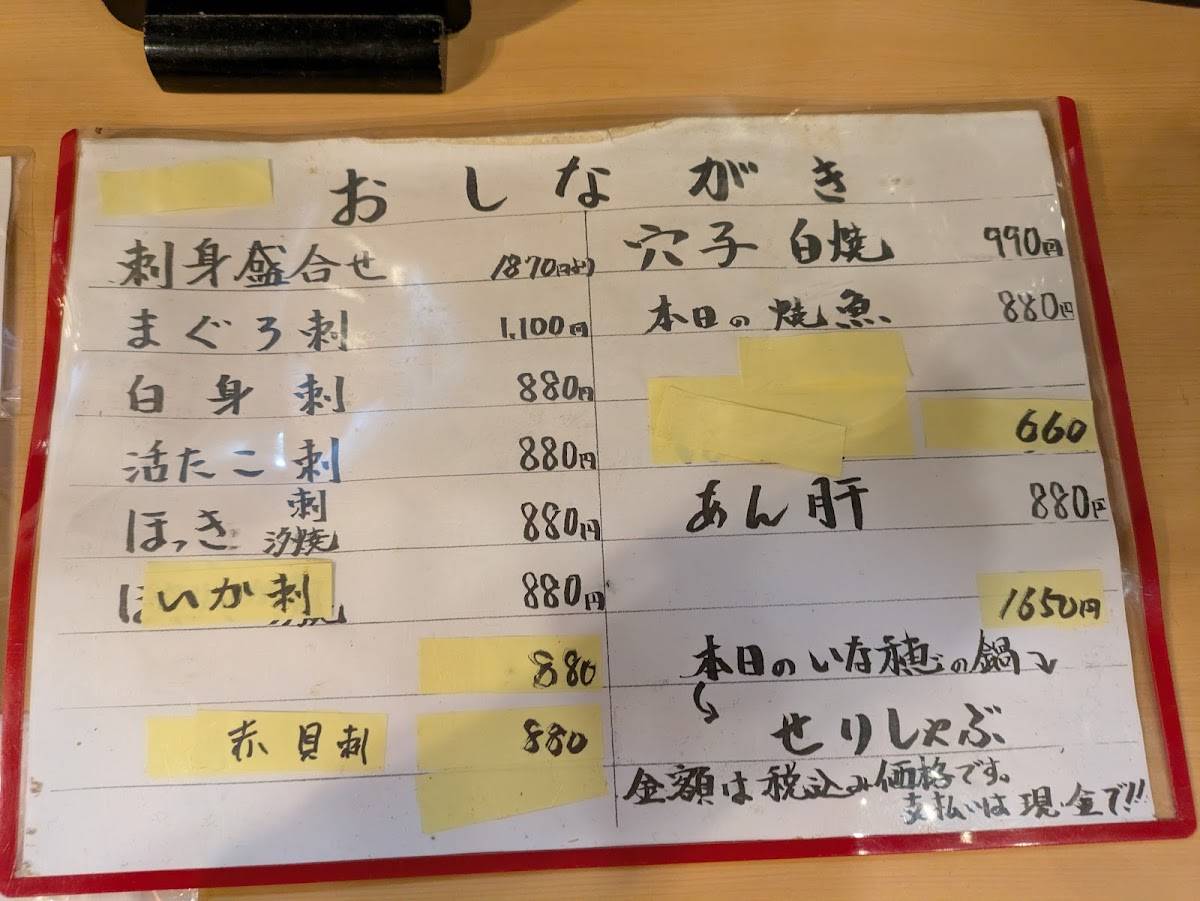 おしながき
刺身盛合せ 1870円より
まぐろ刺 1,100円
白身刺 880円
活たこ刺 880円
ほっき 刺 汐焼 880円
いか刺 880円
880
赤貝刺 880
穴子 白焼 990円
本日の焼魚 880円
660
あん肝 880円
1650円
本日のいな穂の鍋
せりしゃぶ
金額は税込み価格です。
支払いは現金で!!